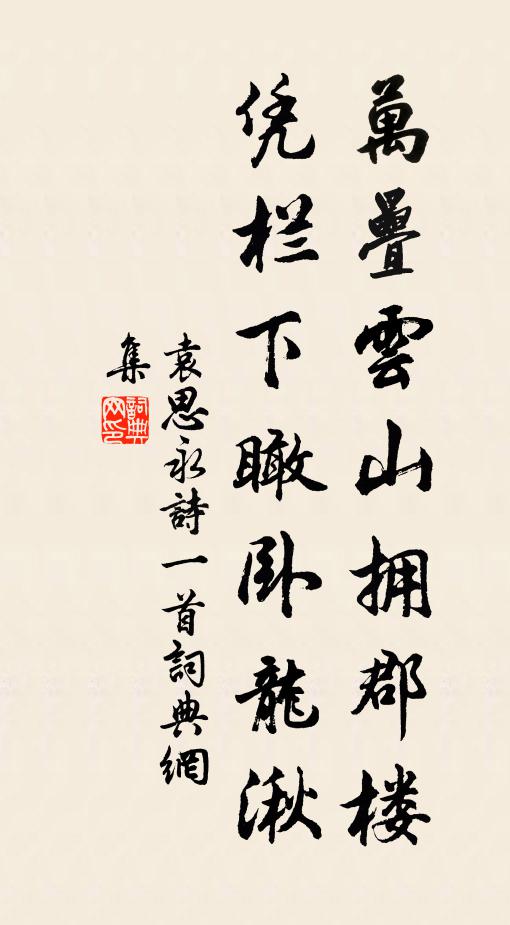 萬疊雲山拥郡楼
凭栏下瞰卧龍湫
袁思永詩一首詞典網
集
詞典网印